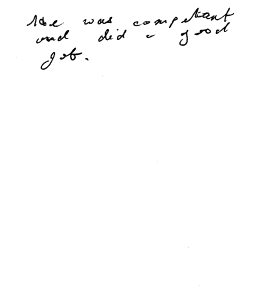 He was competant
and did a good
job.